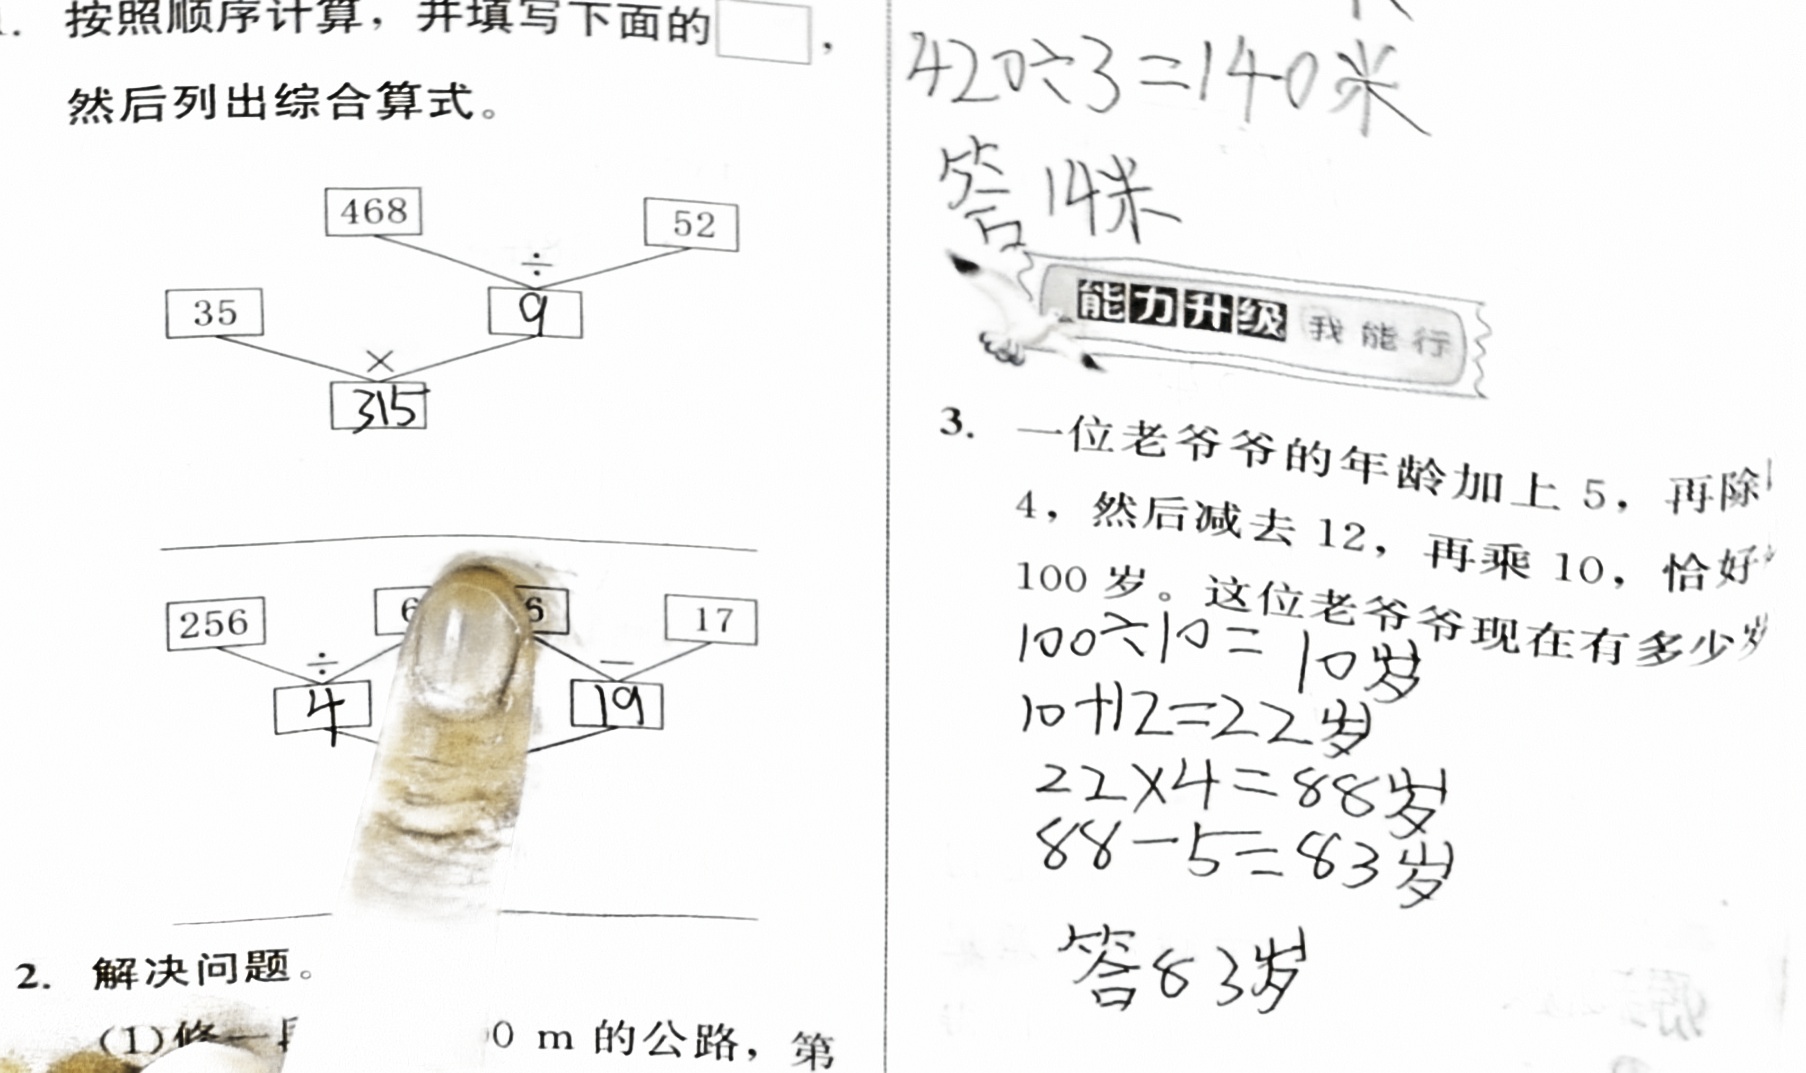 按照顺序计算，并填写下面的□，
然后列出综合算式。
468 52
÷
35 9
×
315
256 6 17
÷ −
4 19
2. 解决问题。
(1)修一
0 m 的公路，第
420÷3=140米
答14米
能力升级 我能行
3. 一位老爷爷的年龄加上 5，再除
4，然后减去 12，再乘 10，恰好
100 岁。这位老爷爷现在有多少岁
100÷10=10岁
10+12=22岁
22×4=88岁
88-5=83岁
答83岁